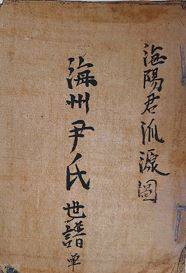 海陽君派源圖
海州尹氏世譜單